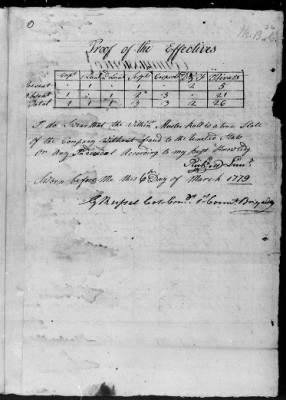 0
Proof of the Effectives
Capt Lieut Serjt Corporals D & F Privates
Present 1 1 2 5
Absent 1 3 21
Total 1 1 1 2 26
I do Swear that the within Muster Roll is a true State
of the Company without fraud to the United States
or any Individual According to my best Knowledge
Lieut.
Sworn before me this 6th Day of March 1779
G Russel Col. Comt. 1st Connt Brigade